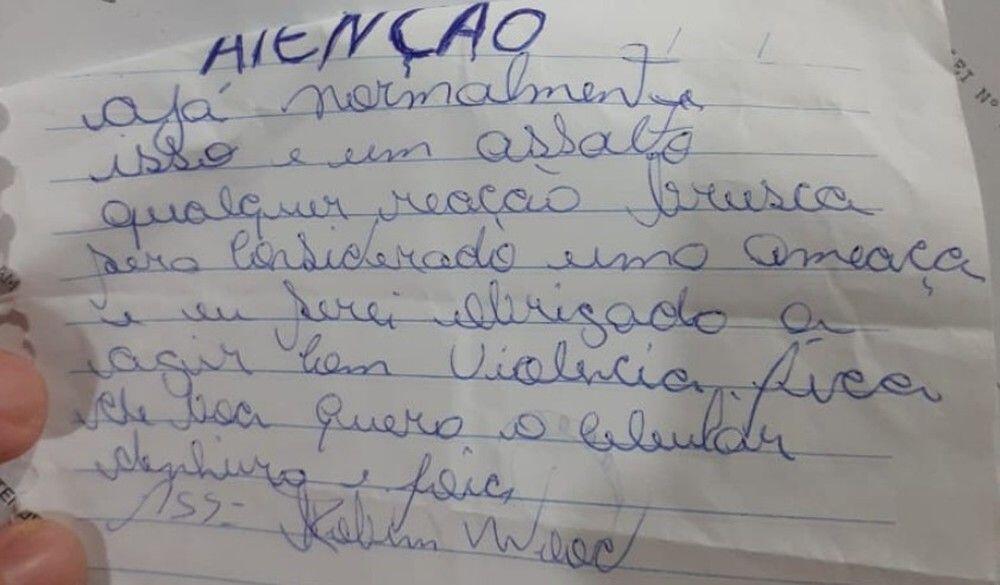 ATENÇÃO
ajá normalmente
isso e um assalto
qualquer reação brusca
sera considerado uma ameaça
e eu serei obrigado a
agir com violencia. fica
de boa quero o celular
dinhiro e joia,
Ass- Robim Wood
EI Nº